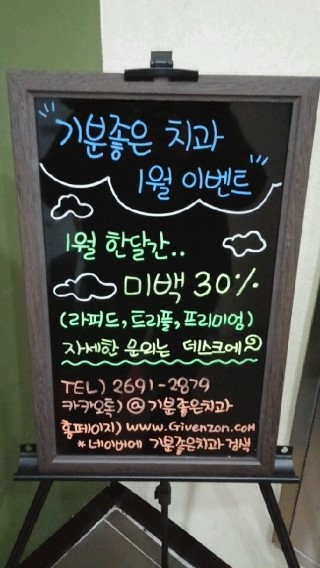 "기분좋은 치과
1월 이벤트"
1월 한달간..
미백 30%
(라퍼드, 트리플, 프리미엄)
자세한 문의는 데스크에
TEL) 2691-2879
카카오톡) @기분좋은치과
홈페이지) www.Givenzon.com
*네이버에 기분좋은치과 검색